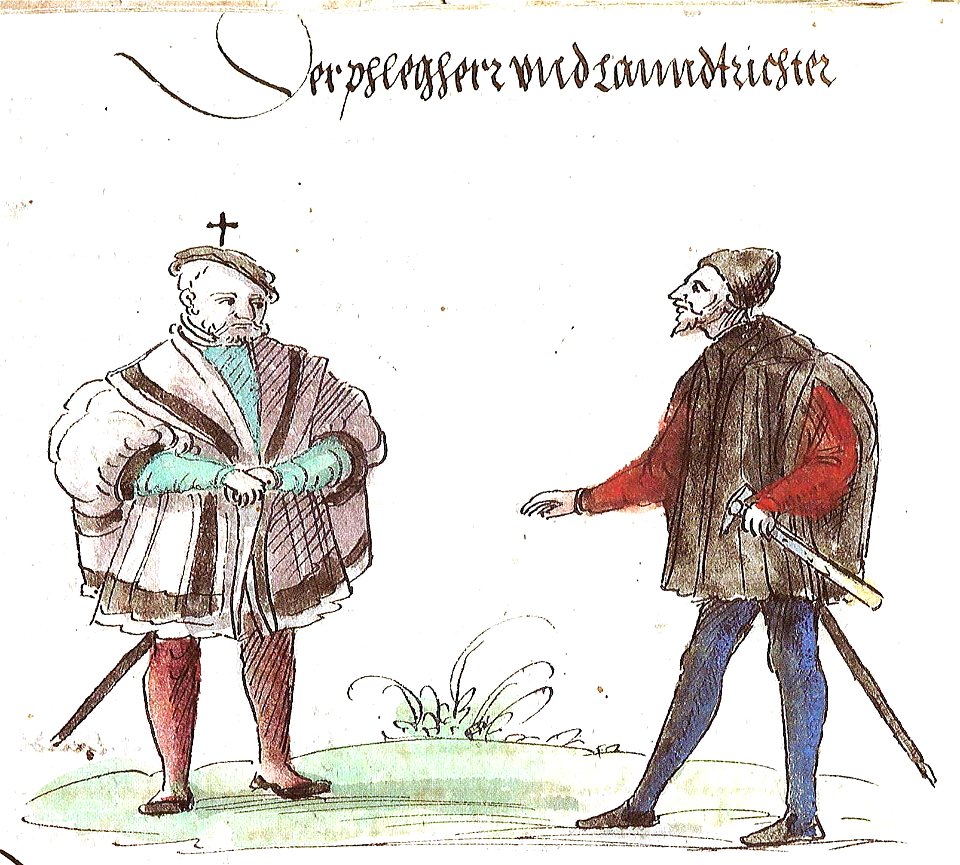 Der phlegherr vnd Lanndtrichter